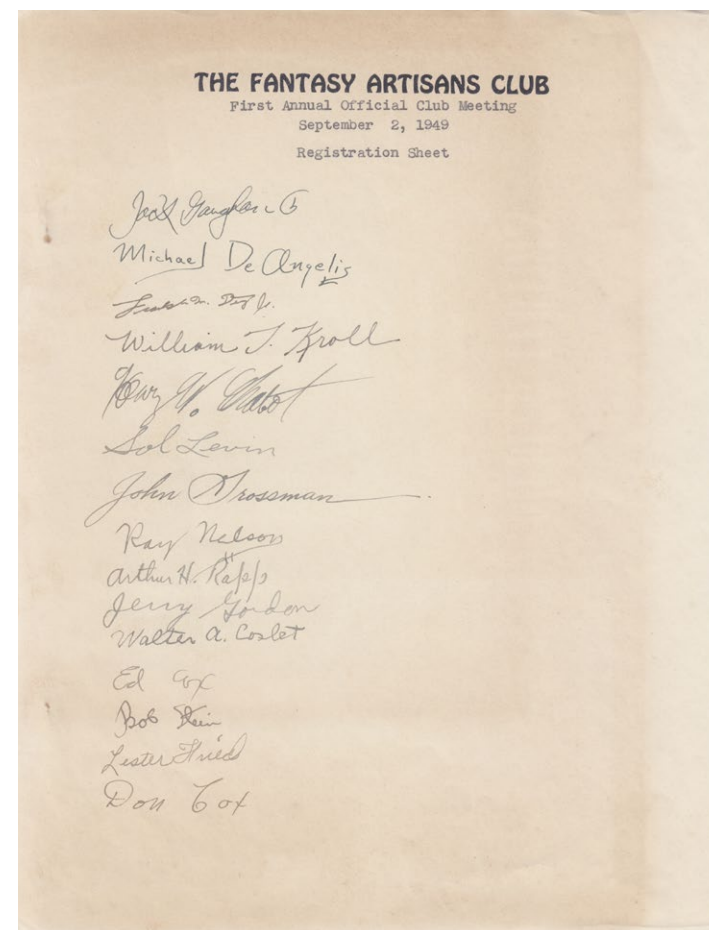 THE FANTASY ARTISANS CLUB
First Annual Official Club Meeting
September 2, 1949
Registration Sheet
Jack Gaughan
Michael De Angelis
William T. Kroll
W. Chabot
Sol Levin
John Grossman
Ray Nelson
Arthur H. Rapp
Jerry Gordon
Walter A. Coslet
Ed Cox
Bob Stein
Lester Fried
Don Cox